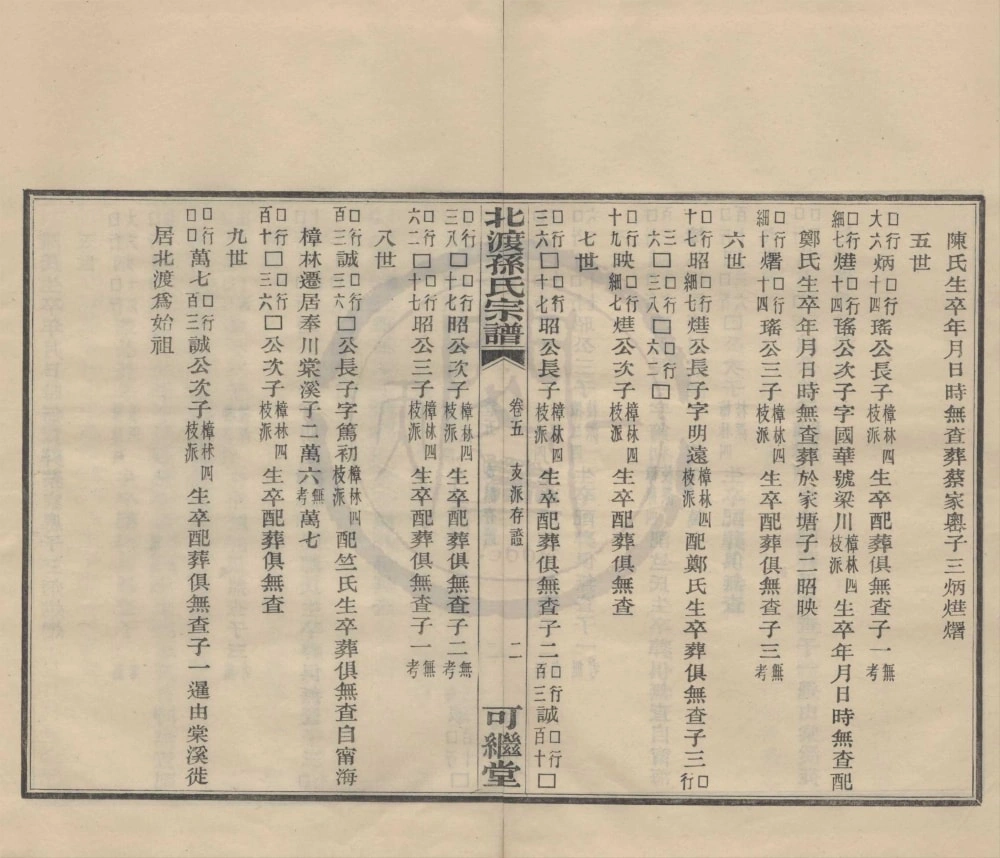 陳氏生卒年月日時無查葬蔡家嶴子三炳𤏪熠
五世
□行大六炳□行十四瑤公長子樟林四枝派生卒配葬俱無查子一無考
□行細七𤏪□行十四瑤公次子字國華號梁川樟林四枝派生卒年月日時無查配
鄭氏生卒年月日時無查葬於家塘子二昭映
□行細十熠□行十四瑤公三子樟林四枝派生卒配葬俱無查子三無考
六世
□行十七昭□行細七𤏪公長子字明遠樟林四枝派配鄭氏生卒葬俱無查子三□行
三六□□行三八□□行六二□
□行十九映□行細七𤏪公次子樟林四枝派生卒配葬俱無查
七世
□行三六□□行十七昭公長子樟林四枝派生卒配葬俱無查子二□行百三誠□行百十□
北渡孫氏宗譜 卷五 支派存證 二 可繼堂
□行三八□□行十七昭公次子樟林四枝派生卒配葬俱無查子二無考
□行六二□□行十七昭公三子樟林四枝派生卒配葬俱無查子一無考
八世
□行百三誠□行三六□公長子字篤初樟林四枝派配竺氏生卒葬俱無查自甯海
樟林遷居奉川棠溪子二萬六無考萬七
□行百十□□行三六□公次子樟林四枝派生卒配葬俱無查
九世
□行□□萬七□行百三誠公次子樟林四枝派生卒配葬俱無查子一暹由棠溪徙
居北渡爲始祖